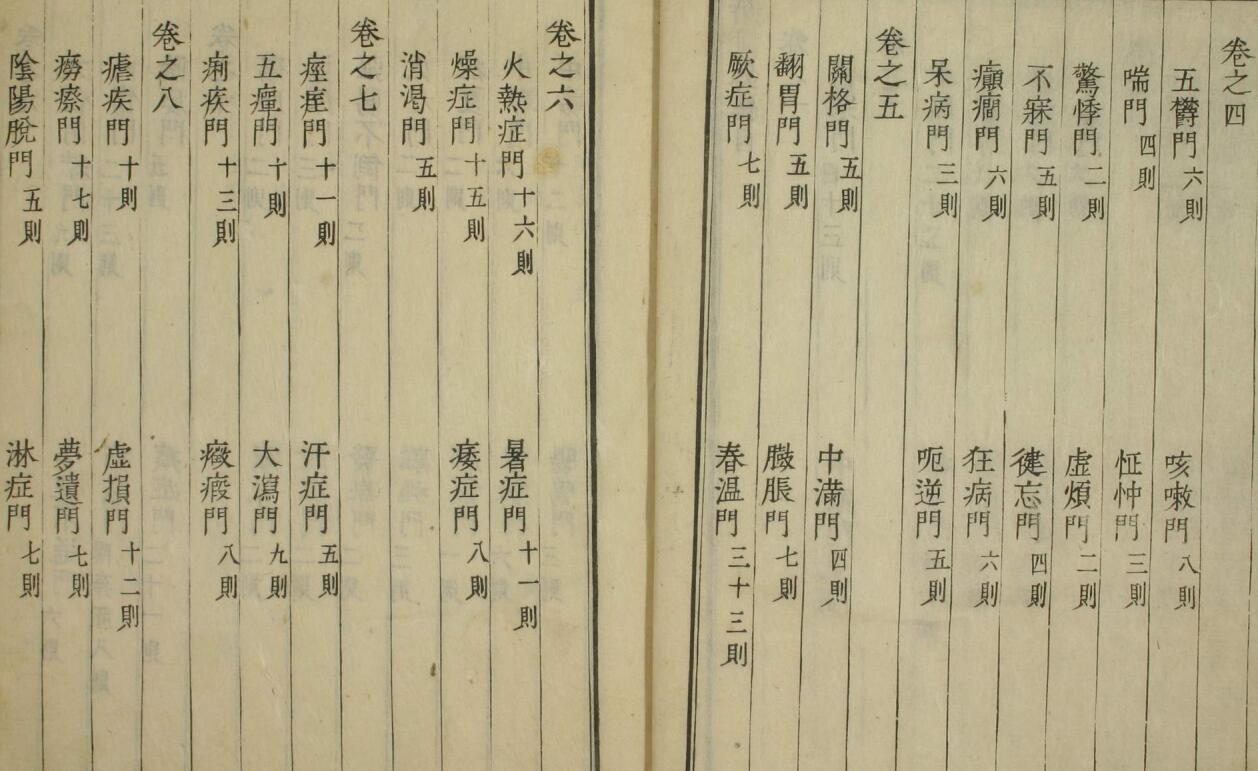 卷之四
五欝門 六則 咳嗽門 八則
喘門 四則 怔忡門 三則
驚悸門 二則 虛煩門 二則
不寐門 五則 健忘門 四則
癲癎門 六則 狂病門 六則
呆病門 三則 呃逆門 五則
卷之五
關格門 五則 中滿門 四則
翻胃門 五則 臌脹門 七則
厥症門 七則 春溫門 三十三則
卷之六
火熱症門 十六則 暑症門 十一則
燥症門 十五則 痿症門 八則
消渴門 五則
卷之七
痙痓門 十一則 汗症門 五則
五癉門 十則 大瀉門 九則
痢疾門 十三則 癥瘕門 八則
卷之八
瘧疾門 十則 虛損門 十二則
癆瘵門 十七則 夢遺門 七則
陰陽脫門 五則 淋症門 七則